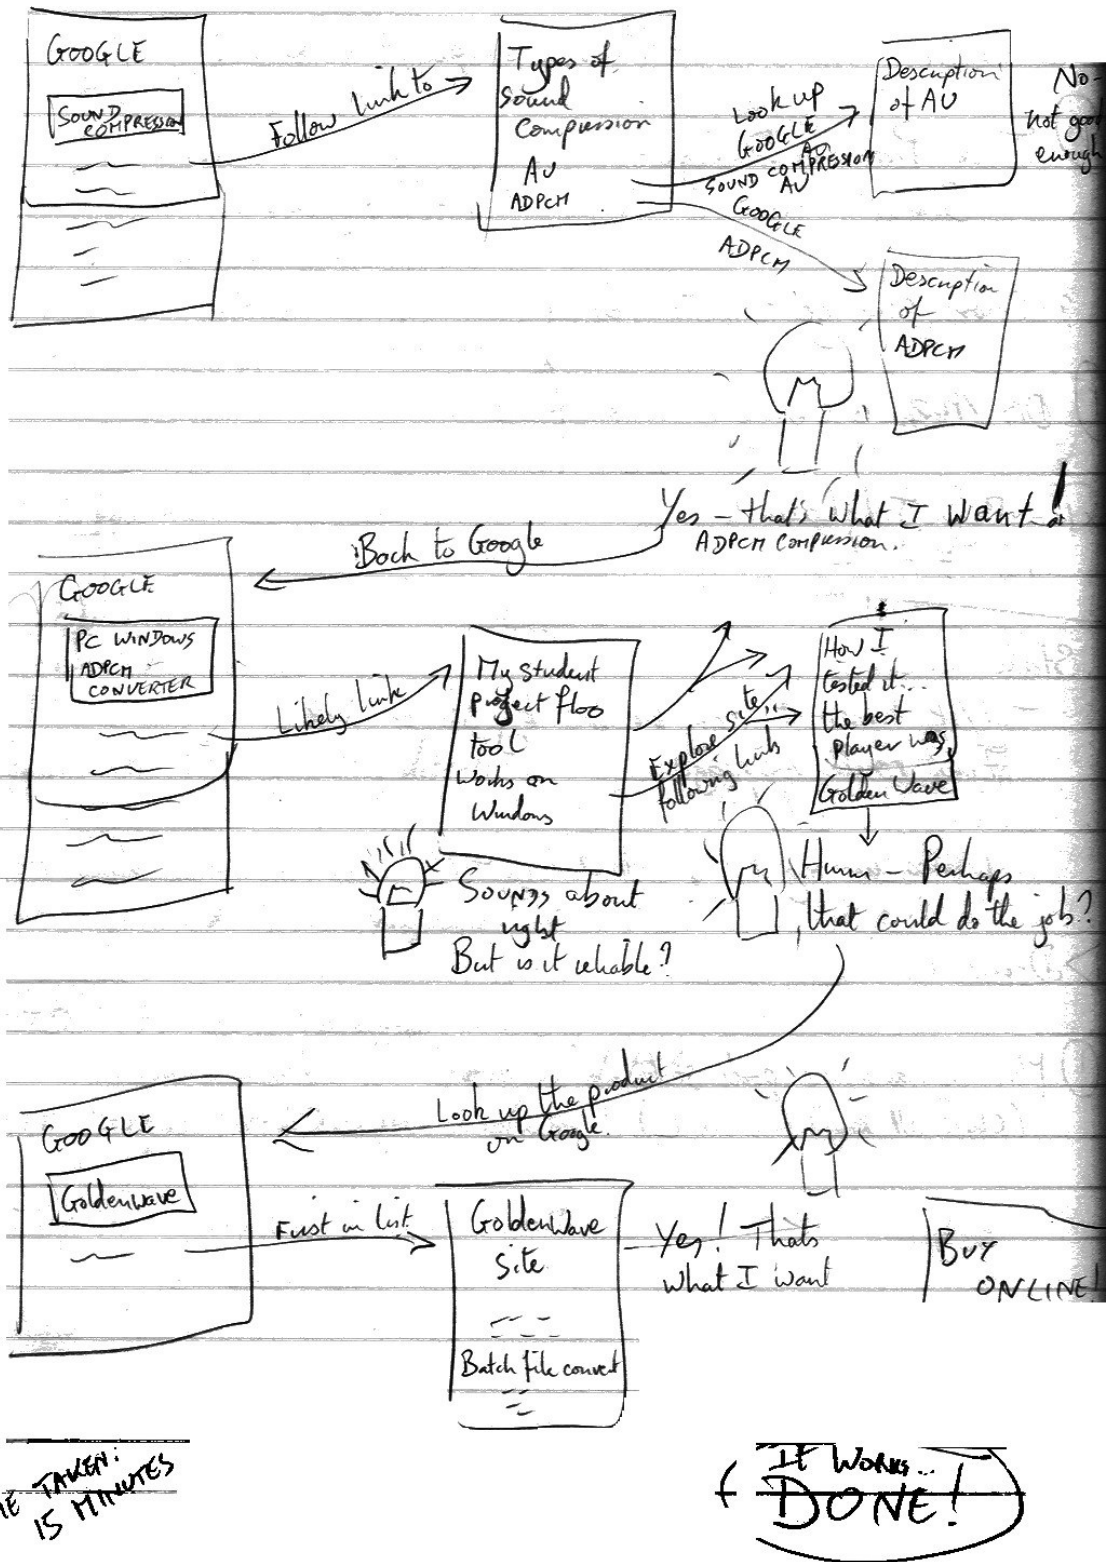 GOOGLE
SOUND
COMPRESSION
Follow link to
Types of
Sound
Compression
AU
ADPCM
Look up
GOOGLE
AU
SOUND COMPRESSION
AU
Description
of AU
No -
not good
enough
GOOGLE
ADPCM
Description
of
ADPCM
Yes - that's what I want!
ADPCM COMPRESSION.
Back to Google
GOOGLE
PC WINDOWS
ADPCM
CONVERTER
Likely link
My student
project
tool
Works on
Windows
Explore site..
following links
How I
tested it...
the best
player was
Golden Wave
Sounds about
right
But is it reliable?
Humm - Perhaps
that could do the job?
Look up the product
on Google.
GOOGLE
Goldenwave
First in list
GoldenWave
Site
Batch file convert
Yes! Thats
what I want
BUY
ONLINE!
TAKEN:
15 MINUTES
IT WORKS..
DONE!